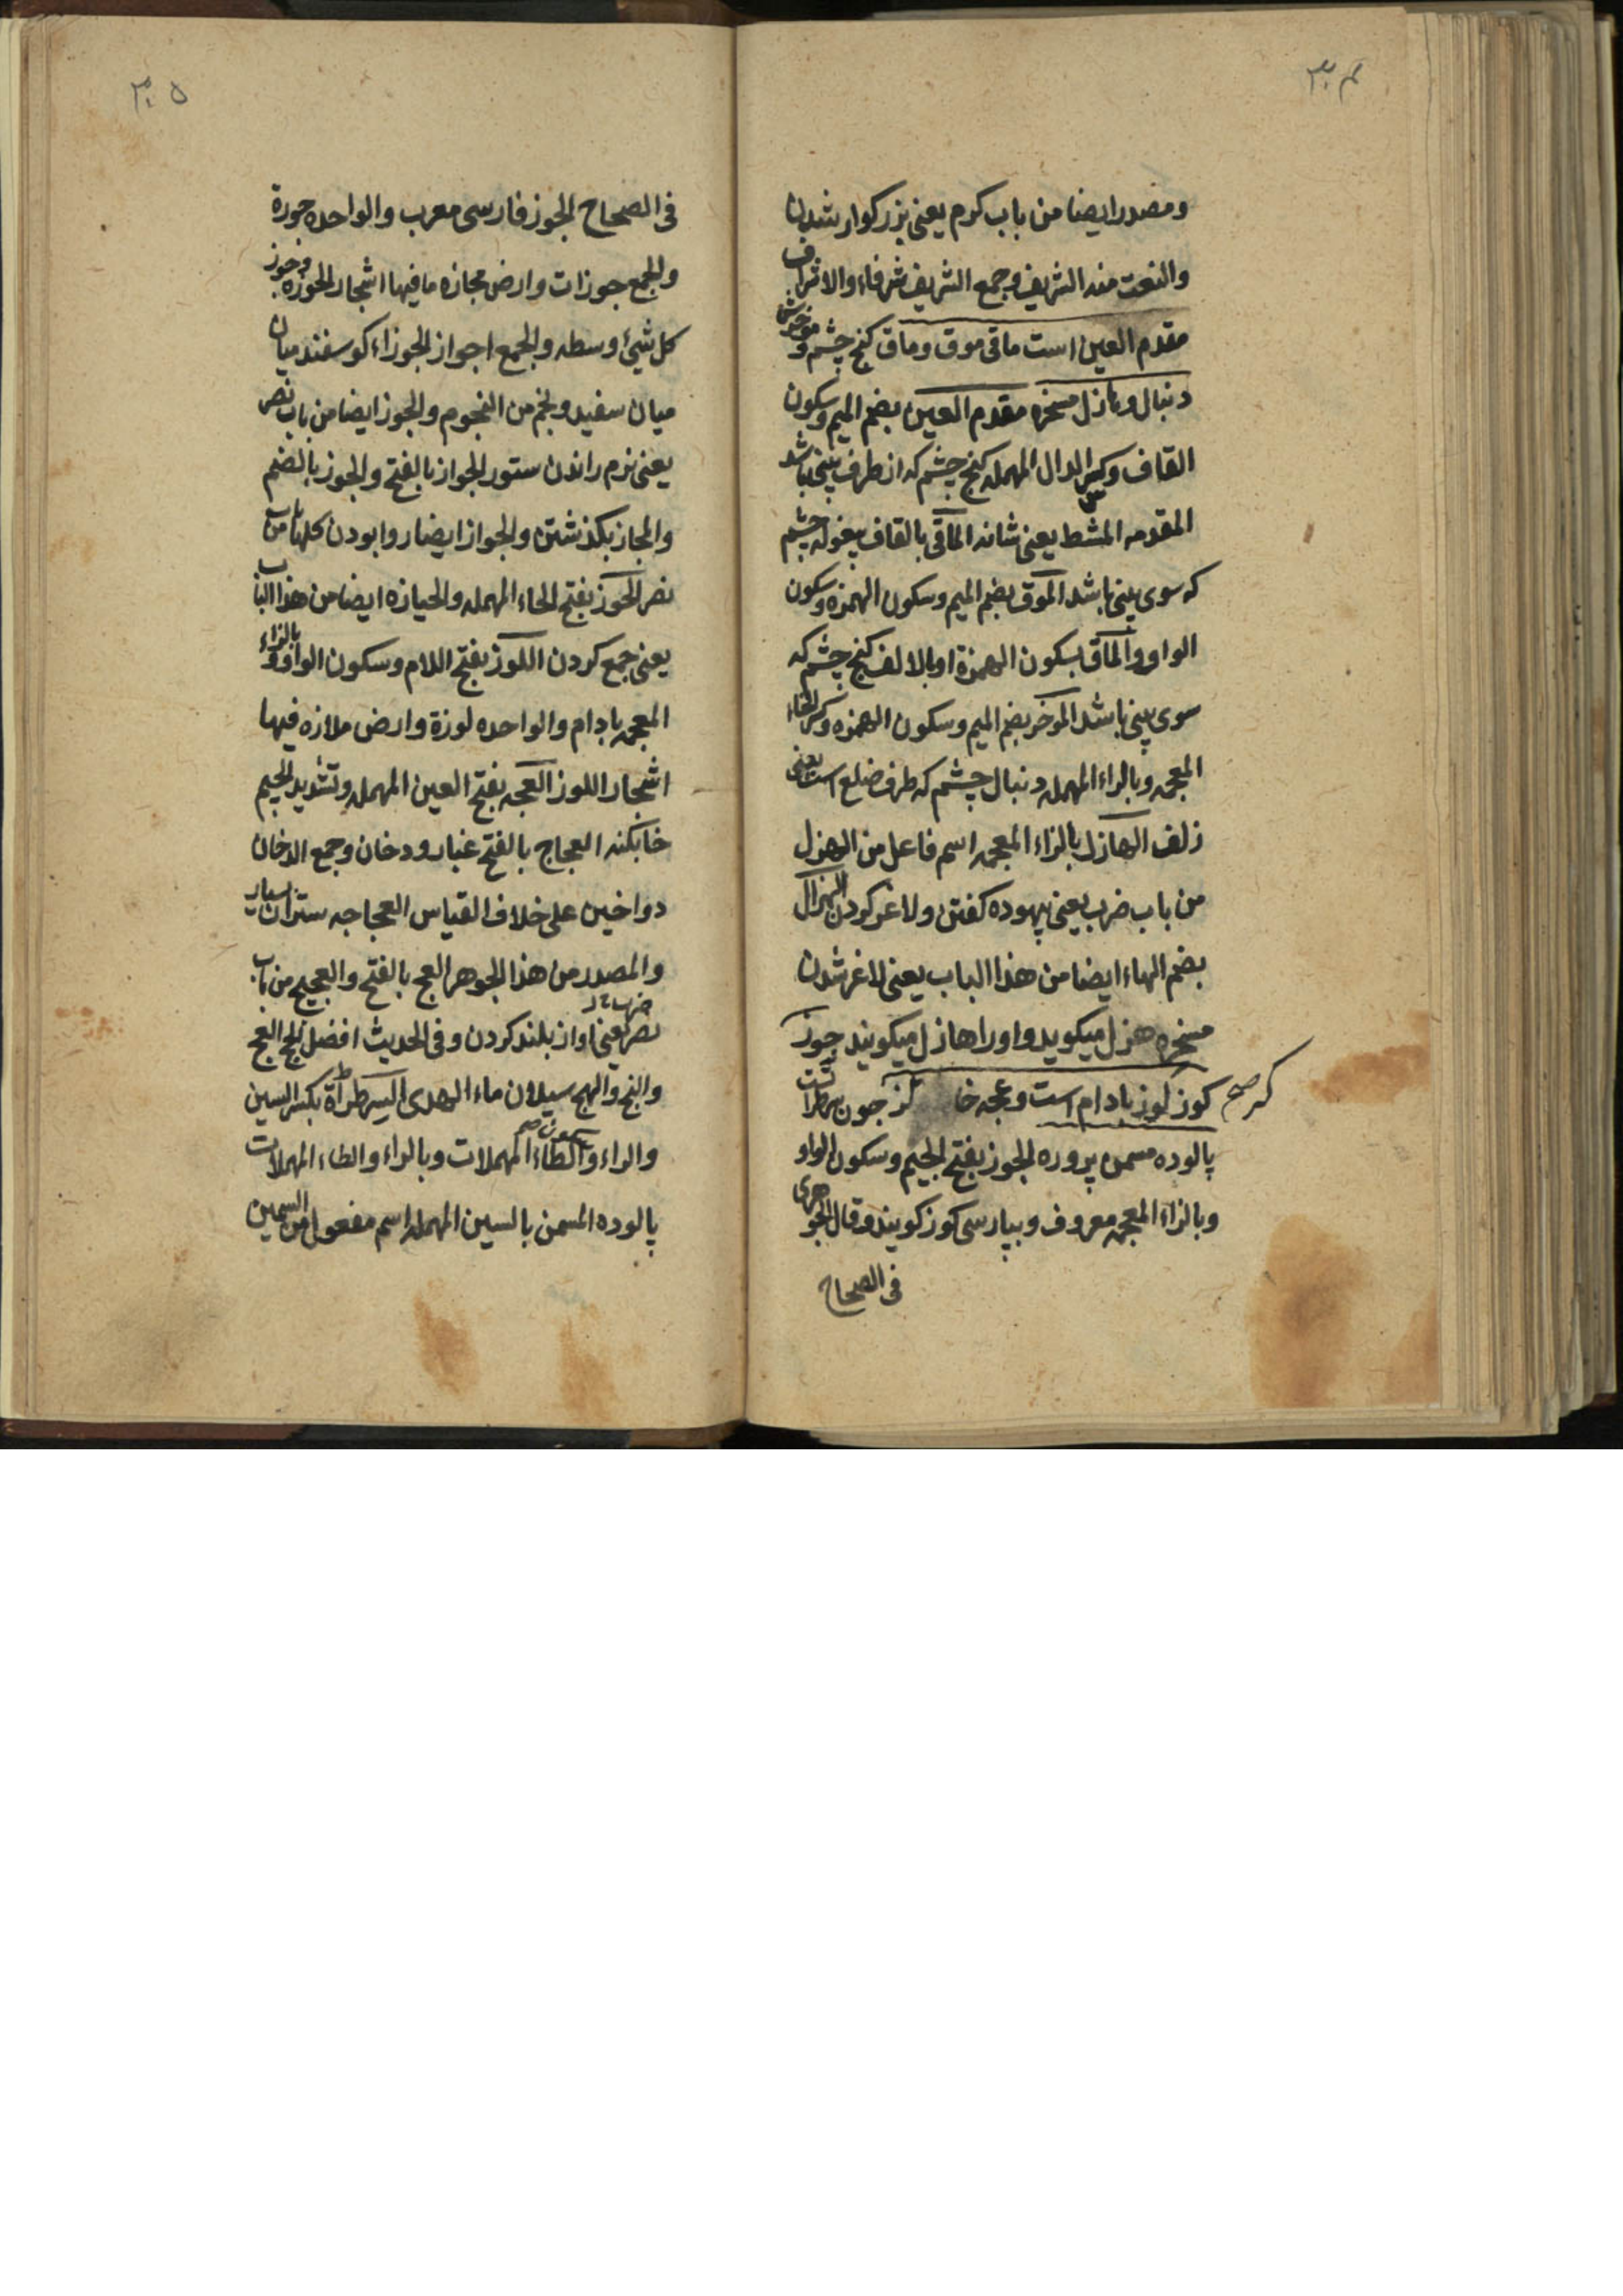 ۳۰۴
ومصدر ایضا من باب کرم یعنی بزرکوار شدن
والنعت منه الشریف وجمع الشریف شرفاء والاشراف
مقدم العین است ماقی موق وماق کنج چشم و موخرش
دنبال وهازل مسخره مقدم العین بضم المیم وسکون
القاف وکسر الدال المهمله کنج چشم که از طرف بینی باشد
المقدمه المشط یعنی شانه الماقی بالقاف بیغوله چشم
که سوی بینی باشد الموق بضم المیم وسکون الهمزه وسکون
الواو والماق بسکون الهمزة او بالالف کنج چشم که
سوی بینی باشد الموخر بضم المیم وسکون الهمزه وکسر الخاء
المعجمه وبالراء المهمله دنبال چشم که طرف ضلع است یعنی
زلف الهازل بالزاء المعجمه اسم فاعل من الهزل
من باب ضرب یعنی بیهوده کفتن ولاغر کردن الهزال
بضم الهاء ایضا من هذا الباب یعنی لاغر شدن
مسخره هزل میکوید واورا هازل میکویند جوز
کوز لوز بادام است وعجه خا کز جون سرطراتست
که صح
پالوده مسمن پروره الجوز بفتح الجیم وسکون الواو
وبالزاء المعجمه معروف وبپارسی کوز کویند وقال الجوهری
فی الصحاح
۳۰۵
فی الصحاح الجوز فارسی معرب والواحده جوزة
والجمع جوزات وارض مجازه ما فیها اشجار الجوزه وجوز
کل شیئ وسطه والجمع اجواز الجوزاء کوسفند میان
میان سفید ونجم من النجوم والجوز ایضا من باب نصر
یعنی نرم راندن ستور الجواز بالفتح والجوز بالضم
والمجاز بکذشتن والجواز ایضا روا بودن کلها من باب
نصر الحوز بفتح الحاء المهمله والحیازه ایضا من هذا الباب
یعنی جمع کردن اللوز بفتح اللام وسکون الواو وبالزاء
المعجمه بادام والواحده لوزة وارض ملازه فیها
اشجار اللوز العجه بفتح العین المهمله وتشدید الجیم
خابکنه العجاج بالفتح غبار ودخان وجمع الدخان
دواخین علی خلاف القیاس العجاجه ستران بسیار
والمصدر من هذا الجوهر العج بالفتح والعجیج من باب
ضرب
نصر یعنی اواز بلند کردن وفی الحدیث افضل الحج العج
والثج والهج سیلان ماء الهدی السرطراة بکسر السین
والراء والطاء المهملات وبالراء والطاء المهملات
پالوده المسمن بالسین المهمله اسم مفعول من السمین